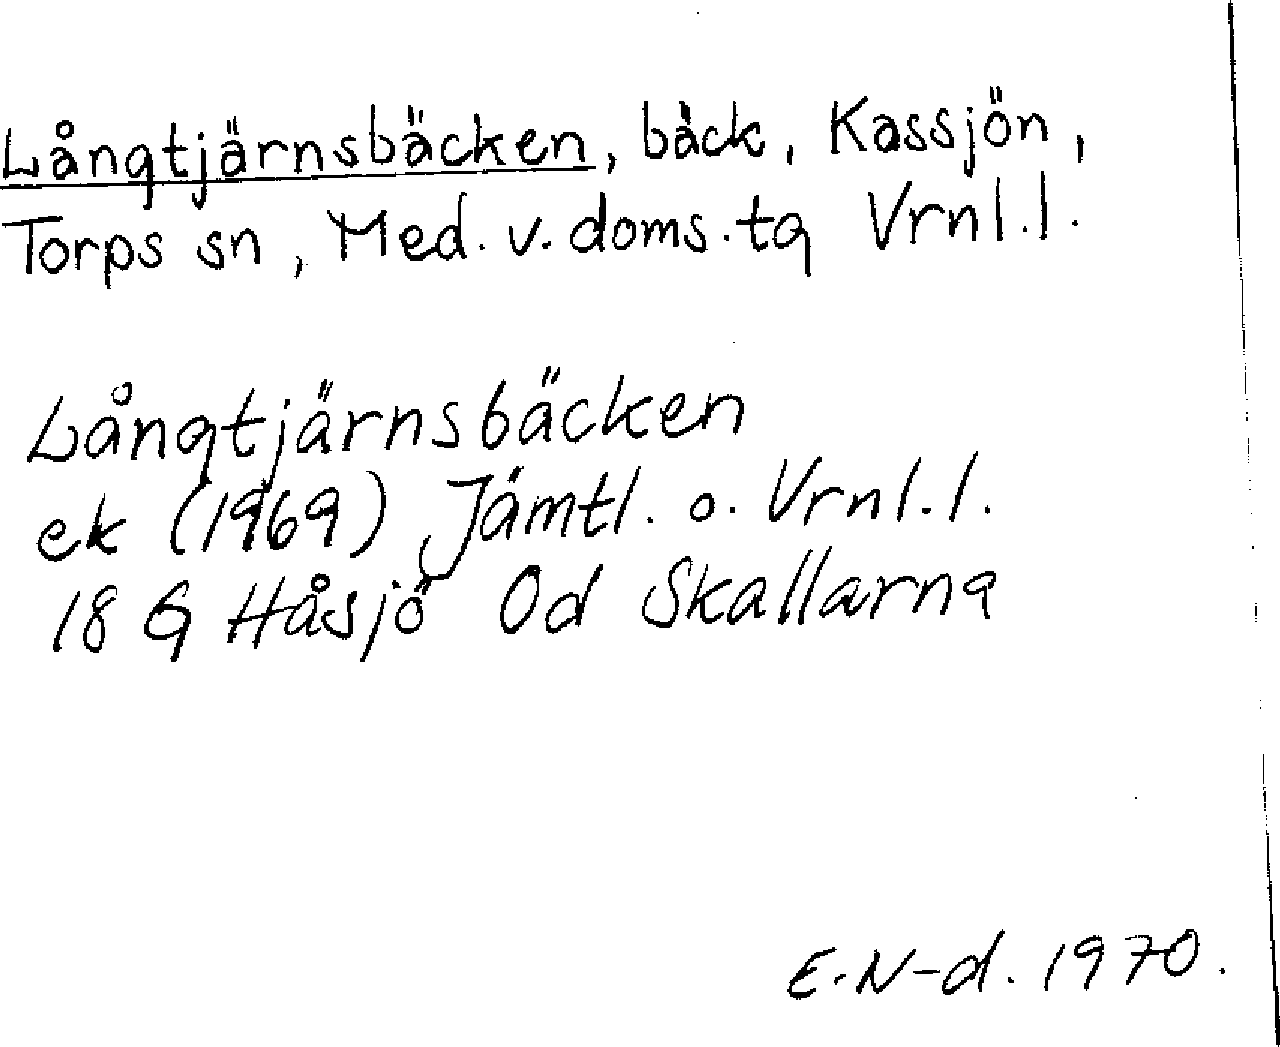 Långtjärnsbäcken, bäck, Kassjön,
Torps sn, Med. v. doms. tg Vrnl.l.
Långtjärnsbäcken
ek (1969) Jämtl. o. Vrnl.l.
18 G Håsjö 0d Skallarna
E.N-d. 1970.